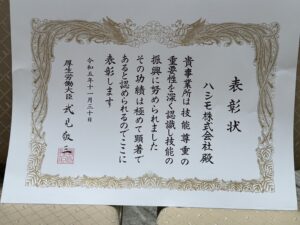 表彰状
ハシモ株式会社殿
貴事業所は技能尊重の
重要性を深く認識し技能の
振興に努められました
その功績は極めて顕著で
あると認められるのでここに
表彰します
令和五年十一月二十日
厚生労働大臣 武見敬三